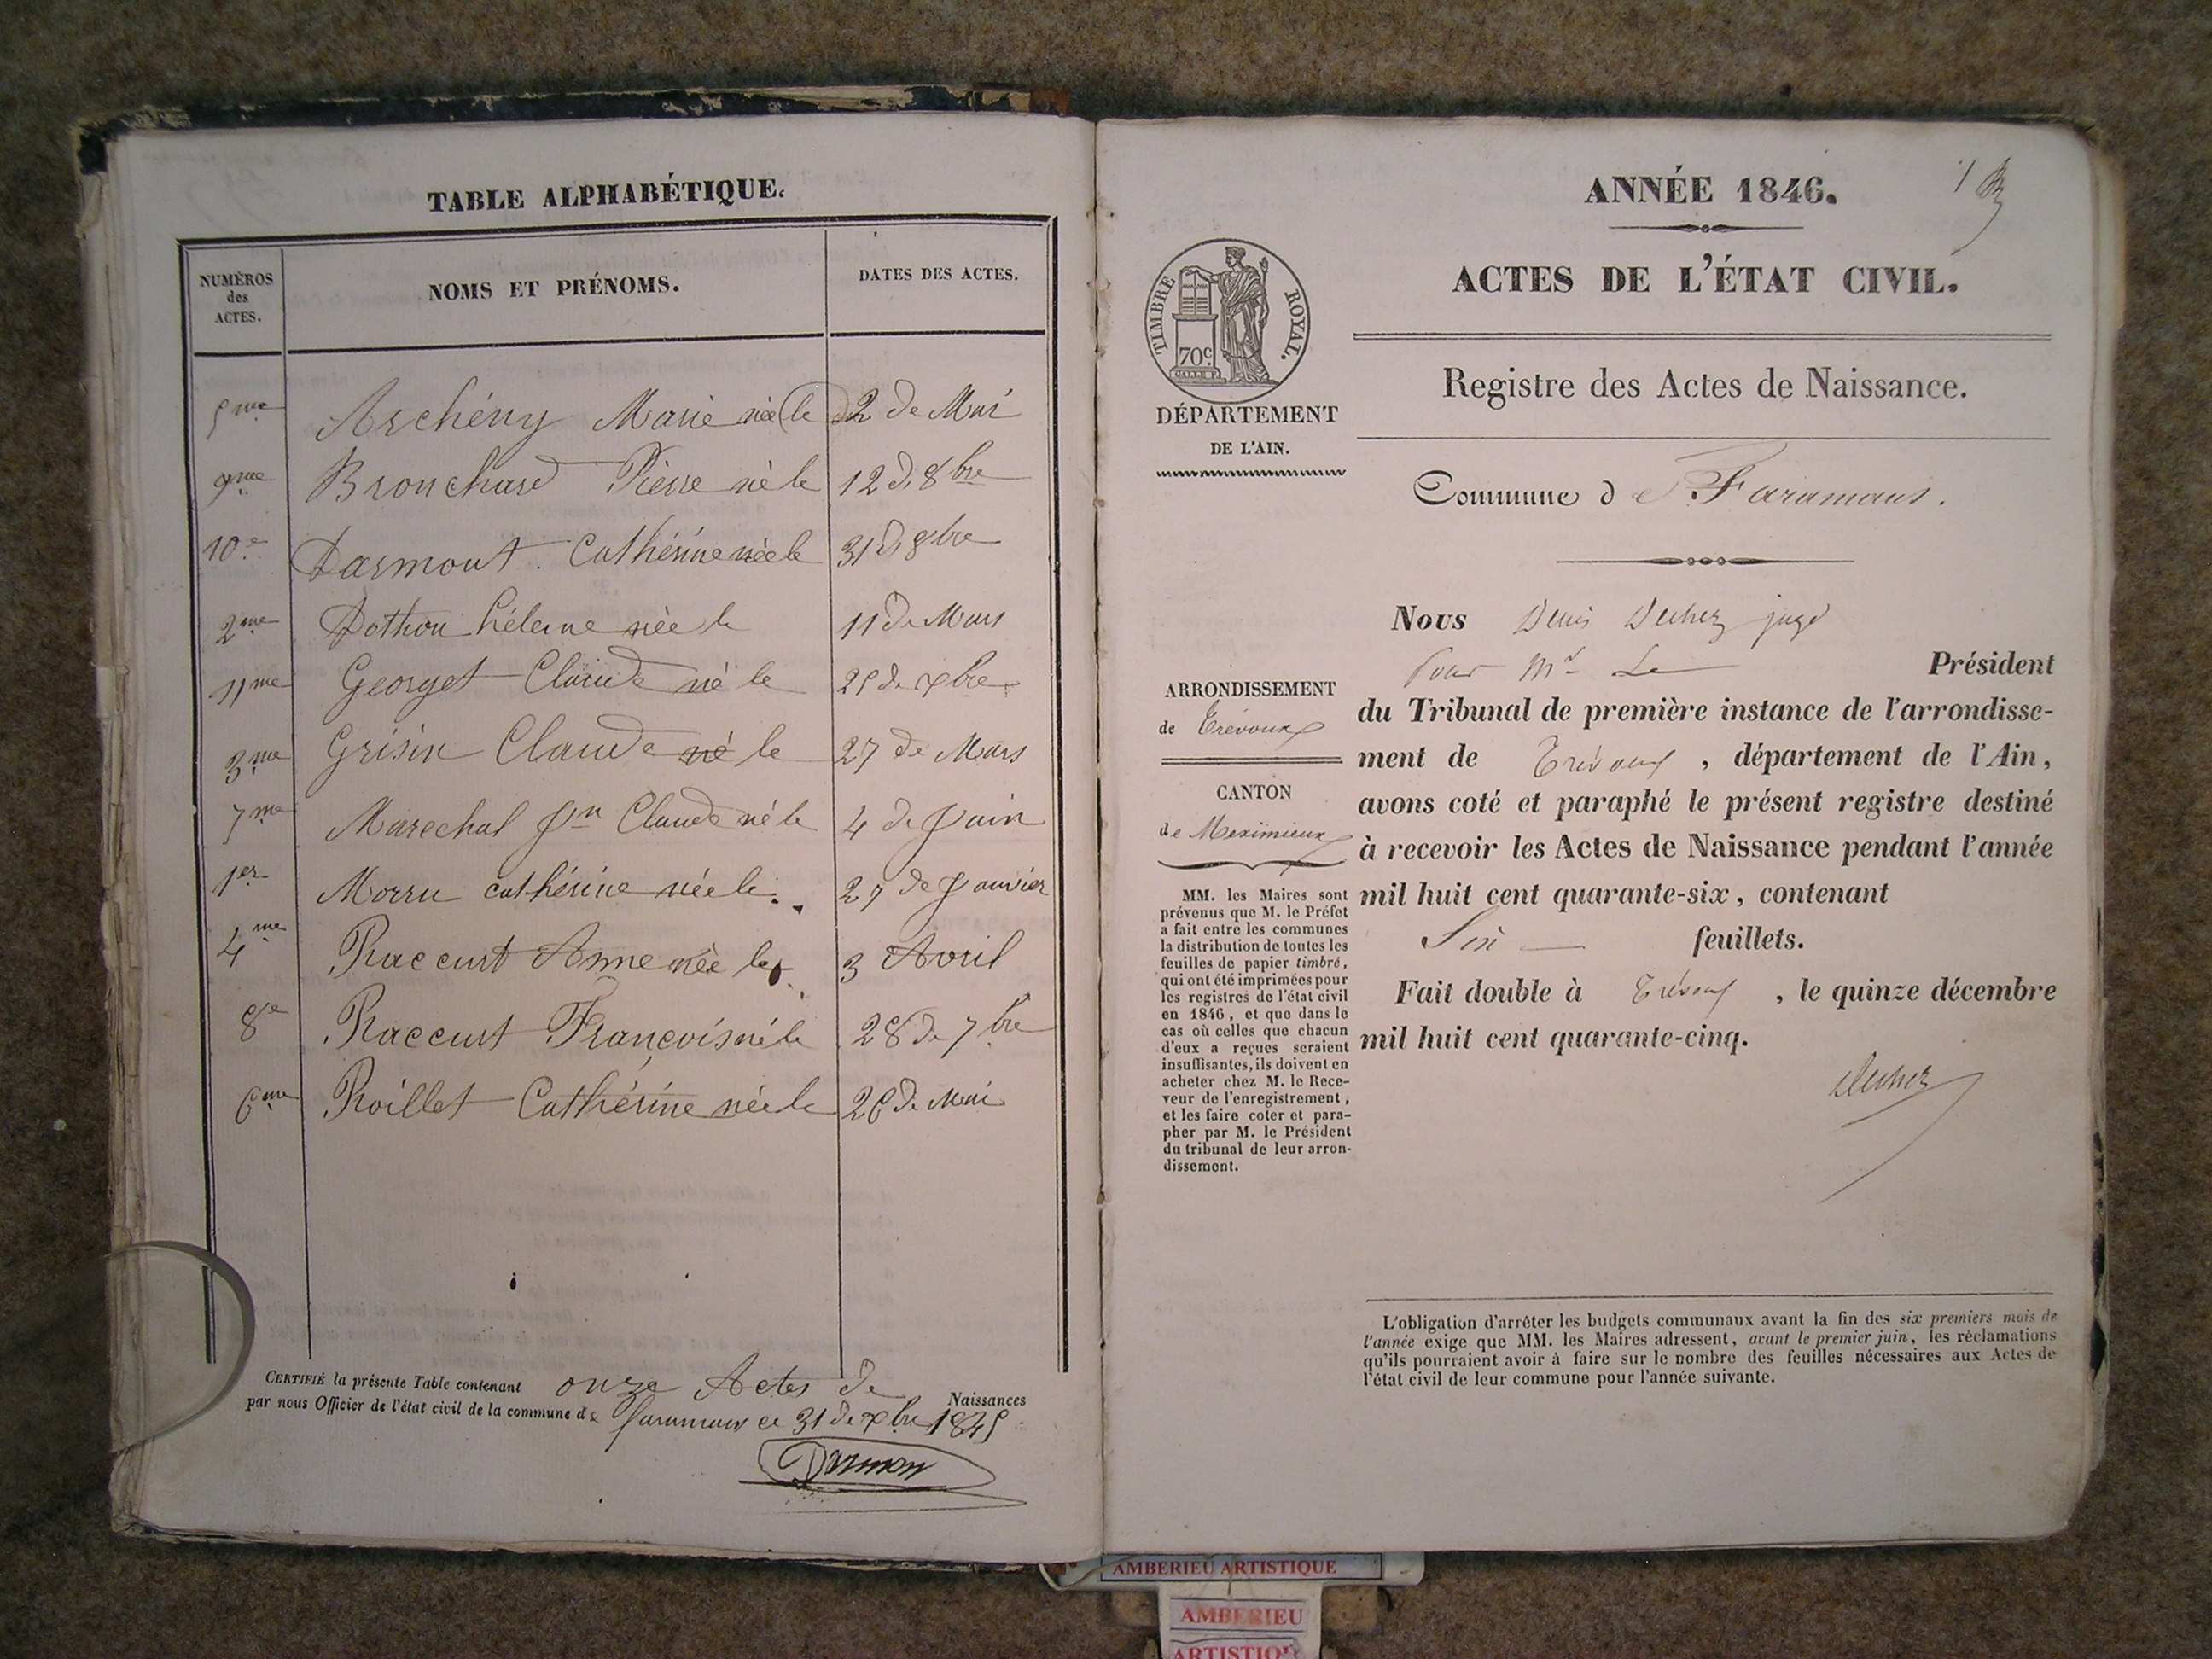 TABLE ALPHABÉTIQUE.
NUMÉROS
des
ACTES.
NOMS ET PRÉNOMS.
DATES DES ACTES.
5me Archény Marie née le 2 de Mai
9me Bronchard Pierre né le 12 de 8bre
10e Darmont Cathérine née le 31 de 8bre
2me Dothon hélene née le 11 de Mars
11me Georget Claude né le 25 de xbre
3me Grisin Claude né le 27 de Mars
7me Marechal Jn Claude né le 4 de Juin
1er Morru cathérine née le 27 de Janvier
4me Raccurt Anne née le 3 Avril
8e Raccurt François né le 28 de 7bre
6me Roillet Cathérine née le 26 de Mai
CERTIFIÉ la présente Table contenant onze Actes de Naissances
par nous Officier de l'état civil de la commune de faramans ce 31 de xbre 1845
Darmon
1
ANNÉE 1846.
ACTES DE L'ÉTAT CIVIL.
TIMBRE ROYAL.
70c
DÉPARTEMENT
DE L'AIN.
Registre des Actes de Naissance.
Commune de Faramans.
ARRONDISSEMENT
de Trévoux
CANTON
de Meximieux
MM. les Maires sont
prévenus que M. le Préfet
a fait entre les communes
la distribution de toutes les
feuilles de papier timbré,
qui ont été imprimées pour
les registres de l'état civil
en 1846, et que dans le
cas où celles que chacun
d'eux a reçues seraient
insuffisantes, ils doivent en
acheter chez M. le Rece-
veur de l'enregistrement,
et les faire coter et para-
pher par M. le Président
du tribunal de leur arron-
dissement.
Nous Denis Duchez juge
Pour Mr Le Président
du Tribunal de première instance de l'arrondisse-
ment de Trévoux, département de l'Ain,
avons coté et paraphé le présent registre destiné
à recevoir les Actes de Naissance pendant l'année
mil huit cent quarante-six, contenant
Six feuillets.
Fait double à Trévoux, le quinze décembre
mil huit cent quarante-cinq.
Duchez
L'obligation d'arrêter les budgets communaux avant la fin des six premiers mois de
l'année exige que MM. les Maires adressent, avant le premier juin, les réclamations
qu'ils pourraient avoir à faire sur le nombre des feuilles nécessaires aux Actes de
l'état civil de leur commune pour l'année suivante.
AMBERIEU ARTISTIQUE
AMBERIEU
ARTISTIQUE